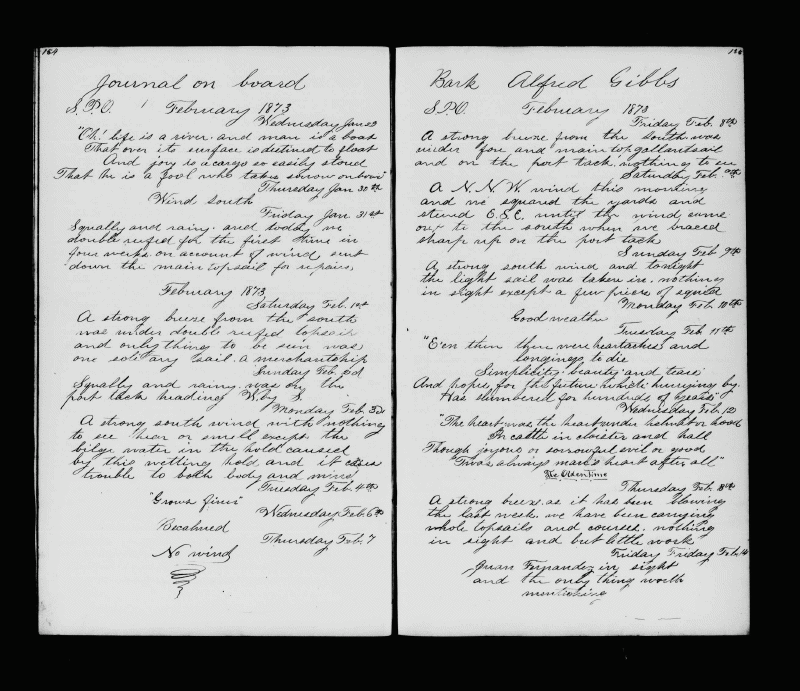 164
Journal on board
S.P.O. February 1873
Wednesday Jan 29
"Oh! life is a river and man is a boat
That over its surface is destined to float
And joy is a cargo so easily stowed
That he is a fool who takes sorrow onboard"
Thursday Jan 30th
Wind South
Friday Jan. 31st
Squally and rainy. and today
double reefed for the first time in
four weeks on account of wind. sent
down the main topsail for repairs,
February 1873
Saturday Feb. 1st
A strong breeze from the south
was under double reefed topsail
and only thing to be seen was
one solitary sail. a merchantship
Sunday Feb. 2d
Squally and rainy. was on the
port tack heading W. by S.
Monday Feb. 3d
A strong south wind with nothing
to see hear or smell except the
bilge water in the hold caused
by this wetting hold and it
trouble to both body and mind
Tuesday Feb. 4th
"Grows finer"
Wednesday Feb. 6th
Becalmed
Thursday Feb. 7
No wind
Bark Alfred Gibbs
S.P.O. February 1873
Friday Feb. 8th
A strong breeze from the south. was
under fore and main top gallantsail
and on the port tack, nothing to see
Saturday Feb.
A N.N.W wind this morning
and we squared the yards and
steered E.S.E. until the wind came
out to the south when we braced
sharp up on the port tack
Sunday Feb 9th
A strong south wind and tonight
the light sail was taken in. nothing
in sight except a few pieces of squid
Monday Feb. 10th
Good weather
Tuesday Feb. 11th
"E'en then then were heartaches and
longings to die
Simplicity beauty and tears
And hopes for the future which hurrying by
Has slumbered for hundreds of years"
Wednesday Feb. 12
"The heart was the heart under helmet or hood
In castle in cloister and hall
Though joyous or sorrowful evil or good
Twas always man's heart after all"
The Olden Time
Thursday Feb.
A strong breeze as it has been blowing
the last week. we have been carrying
whole topsails and courses. nothing
in sight and but little work
Friday Friday Feb. 14
Juan Fernandez in sight
and the only thing worth
mentioning